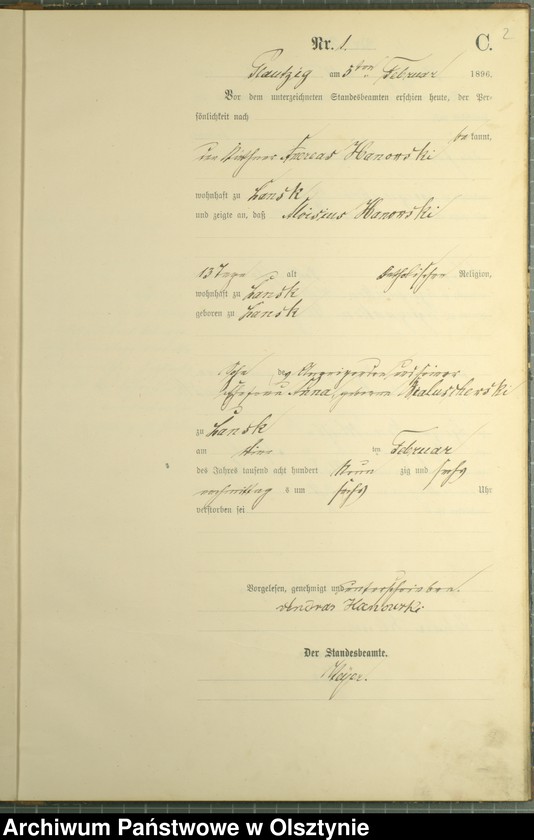 2
Nr. 1. C.
am 5ten Februar 1896.
Vor dem unterzeichneten Standesbeamten erschien heute, der Per-
sönlichkeit nach
be kannt,
der Käthner Andreas Hanowski
wohnhaft zu Lansk
und zeigte an, daß Hanowski
13 Tage alt katholischer Religion,
wohnhaft zu Lansk
geboren zu Lansk
Sohn des Anzeigenden und seiner
Ehefrau Anna, geborene
zu Lansk
am ten Februar
des Jahres tausend acht hundert Neun zig und sechs
nachmittag s um sechs Uhr
verstorben sei
Vorgelesen, genehmigt und unterschrieben.
Hanowski
Der Standesbeamte.
Archiwum Państwowe w Olsztynie